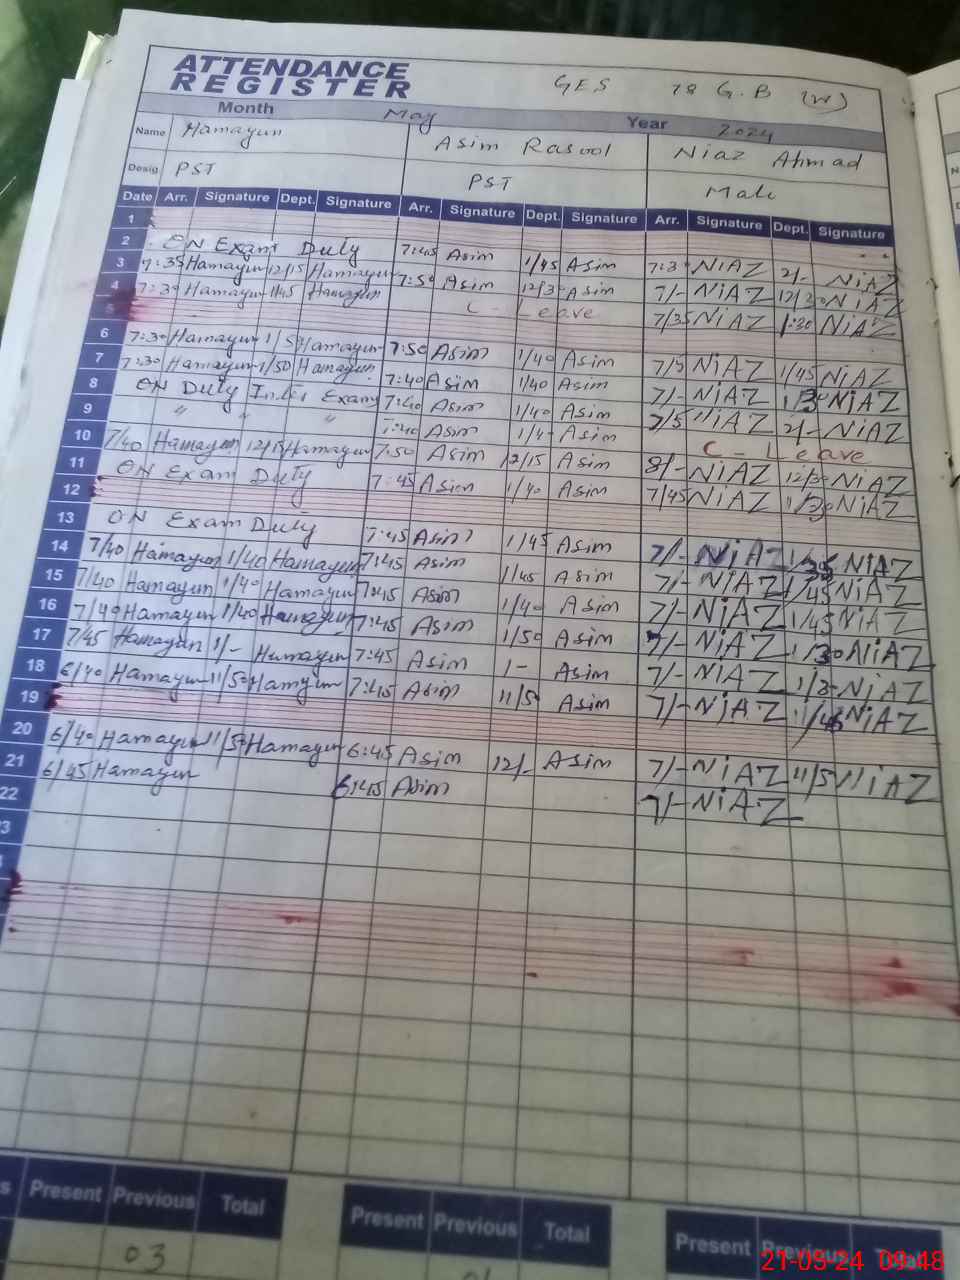 ATTENDANCE
REGISTER
GES 78 G.B (W)
Month May Year 2024
Name Hamayun Asim Rasool Niaz Ahmad
Desig PST PST Mali
Date Arr. Signature Dept. Signature Arr. Signature Dept. Signature Arr. Signature Dept. Signature
1
2 ON Exam Duty 7:45 Asim 1/45 Asim 7:30 NIAZ 2/- NIAZ
3 7:35 Hamayun 12/15 Hamayun 7:50 Asim 12/30 Asim 7/- NIAZ 12/30 NIAZ
4 7:30 Hamayun 11:45 Hamayun C - Leave 7/35 NIAZ 1:30 NIAZ
5
6 7:30 Hamayun 1/5 Hamayun 7:50 Asim 1/40 Asim 7/5 NIAZ 1/45 NIAZ
7 7:30 Hamayun 1/50 Hamayun 7:40 Asim 1/40 Asim 7/- NIAZ 1/30 NIAZ
8 ON Duty Inter Exam 7:40 Asim 1/40 Asim 7/5 NIAZ 2/- NIAZ
9 " " " 7:40 Asim 1/40 Asim C - Leave
10 7/40 Hamayun 12/15 Hamayun 7:50 Asim 12/15 Asim 8/- NIAZ 12/30 NIAZ
11 ON Exam Duty 7:45 Asim 1/40 Asim 7/45 NIAZ 1/30 NIAZ
12
13 ON Exam Duty 7:45 Asim 1/45 Asim 7/- NIAZ 1/35 NIAZ
14 7/40 Hamayun 1/40 Hamayun 7:45 Asim 1/45 Asim 7/- NIAZ 1/45 NIAZ
15 7/40 Hamayun 1/40 Hamayun 7:45 Asim 1/40 Asim 7/- NIAZ 1/45 NIAZ
16 7/40 Hamayun 1/40 Hamayun 7:45 Asim 1/50 Asim 7/- NIAZ 1/30 NIAZ
17 7/45 Hamayun 1/- Hamayun 7:45 Asim 1- Asim 7/- NIAZ 1/3- NIAZ
18 6/40 Hamayun 11/50 Hamayun 7:45 Asim 11/50 Asim 7/- NIAZ 1/45 NIAZ
19
20 6/40 Hamayun 11/50 Hamayun 6:45 Asim 12/- Asim 7/- NIAZ 11/5 NIAZ
21 6/45 Hamayun 6:45 Asim 7/- NIAZ
22
Present Previous Total Present Previous Total Present Previous Total
03
21-05-24 09:48